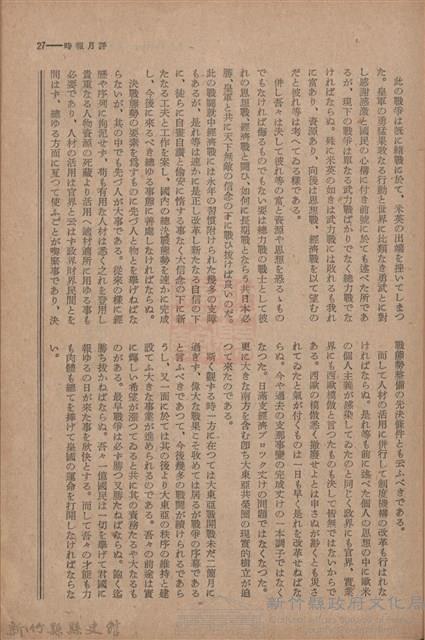 27——時報月評
此の戰爭は既に緒戰に於て、米英の出端を挫いてしまつ
た。皇軍の勇猛果敢なる行動と世界に比類なき勇武とに對
し感謝感激と國民の心構に付き前號に於ても述べた所であ
るが、現下の戰爭は單なる武力戰ばかりでなく總力戰でな
ければならぬ。殊に米英の如きは武力戰には敗れるも我れ
に富あり、資源あり、向後は思想戰、經濟戰を以て望むの
だと彼れ等は考へてゐる樣である。
併し吾々は決して彼れ等の富と資源や思想を恐るゝもの
でもなければ侮るものでもない要は總力戰の戰士として彼
れの思想戰、經濟戰と鬪ひ、如何に長期戰とならう共日本必
勝、皇軍と共に天下無敵の信念の下に戰ひ拔けば良いのだ。
此の戰鬪就中經濟戰には永年の習慣附けられた幾多の支障
もあるが、是れ等は速かに是正し改革し新たなる自信の下
に、徒らに自畫自讚と偸安に惰する事なく大信念の下に新
たなる工夫と工作を案し、國內の總決戰態勢を速かに完成
し、今後に來るべき總ゆる事態に善處しなければならぬ。
決戰態勢の要素を爲すものに先づ人と物とを擧げねばな
らないが、其の中でも先づ人が大事である。從來の樣に經
歷や序列に拘泥せず、苟も有用な人材は悉く之れを登用し
貴重なる人物資源の死藏より活用へ適材適所に用ゆる事も
必要であり、人材の活用は官界と云はず政界財界民間とを
間はず、總ゆる方面に亙つて使ふことが喫緊事であり、決
戰態勢整備の先決條件とも云ふべきである。
而して人材の活用に併行して制度機構の改革も行はれな
ければならぬ。是れ等も前に述べた個人の思想の中に歐米
の個人主義が感染してゐたのと同じく政界にも官界、實業
界にも西歐模倣と言つたものも決して皆無ではないからで
ある。西歐の模倣悉く撤廢せよとは申さぬが尠くとも災さ
れてゐたと氣が付くものは一日も早く是れを改革せねばな
らぬ。今や過去の支那事變の完成丈けの一本調子ではなく
なつた。日滿支經濟ブロツク丈けの問題ではなくなつた。
更に大きな南方を含む卽ち大東亞共榮圈の現實的樹立が迫
つて來たのである。
斯く觀する時一方に在つては大東亞戰開戰未だ二箇月に
過ぎず、偉大な戰果こそ收めては居るが戰爭の序幕である
と言ふべきであつて、今後幾多の戰鬪が續けられるであら
うし、又一面に於ては其の後より大東亞の秩序の維持と建
設てふ大きな事業が進められるのである。吾々の前途は實
に輝しい希望が漲つてゐると共に其の責務たるや大なるも
のがある。最早戰爭は必ず勝つ又勝たねばならぬ。飽く迄
勝ち拔かねばならぬ。吾々一億國民は一切を擧げて君國に
報ゆるの日が來た事を欣快とする。而して吾々の才能も力
も肉體も總てを捧げて皇國の運命を打開しなければならな
い。
新竹縣政府文化局
新竹縣縣史館